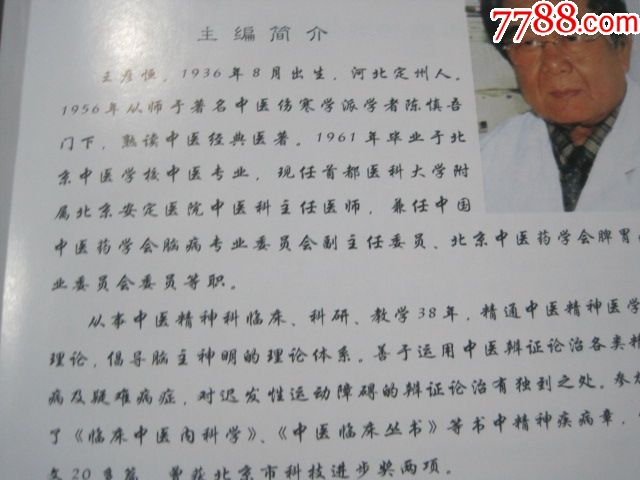 7788.com
中国收藏热线
主编简介
王彦恒，1936年8月出生，河北定州人。
1956年从师于著名中医伤寒学派学者陈慎吾
门下，熟读中医经典医著。1961年毕业于北
京中医学校中医专业，现任首都医科大学附
属北京安定医院中医科主任医师，兼任中国
中医药学会脑病专业委员会副主任委员、北京中医药学会脾胃
业委员会委员等职。
从事中医精神科临床、科研、教学38年，精通中医精神医学
理论，倡导脑主神明的理论体系。善于运用中医辨证论治各类精
病及疑难病症，对迟发性运动障碍的辨证论治有独到之处。参加
了《临床中医内科学》、《中医临床丛书》等书中精神疾病章，
文20余篇 曾获北京市科技进步奖两项。